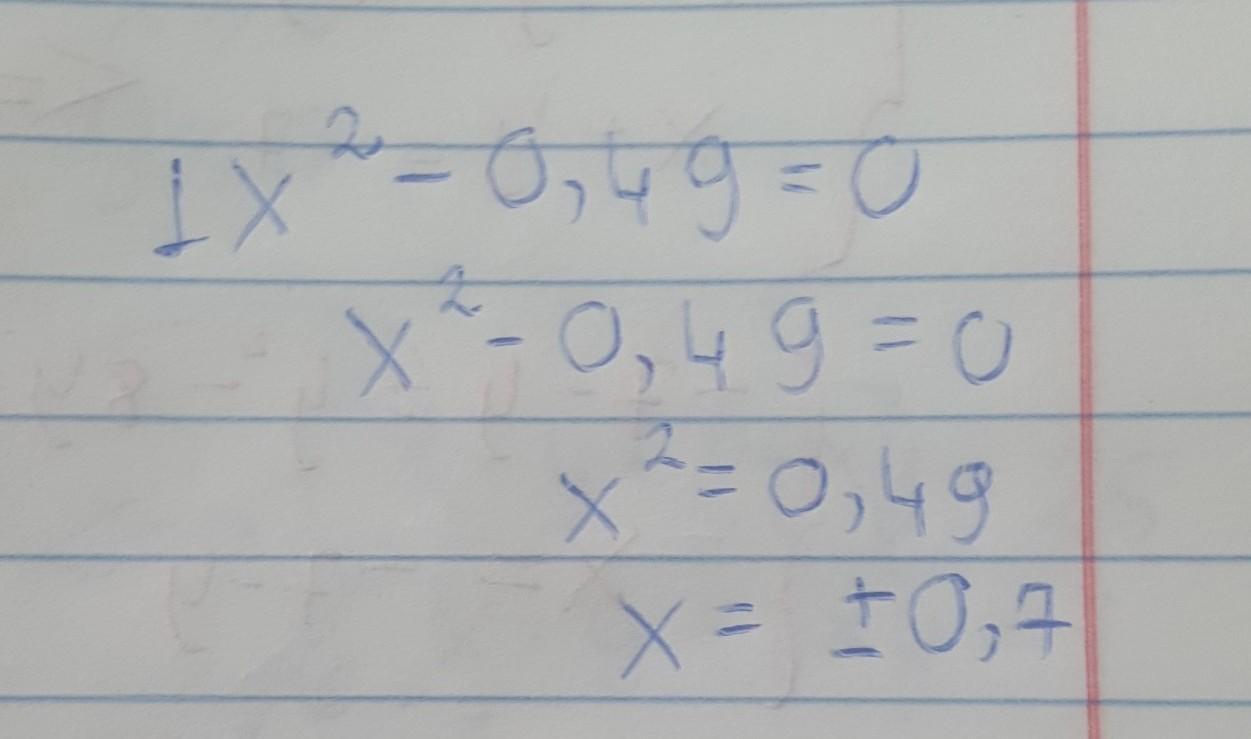 1x² - 0,49 = 0
x² - 0,49 = 0
x² = 0,49
x = ±0,7